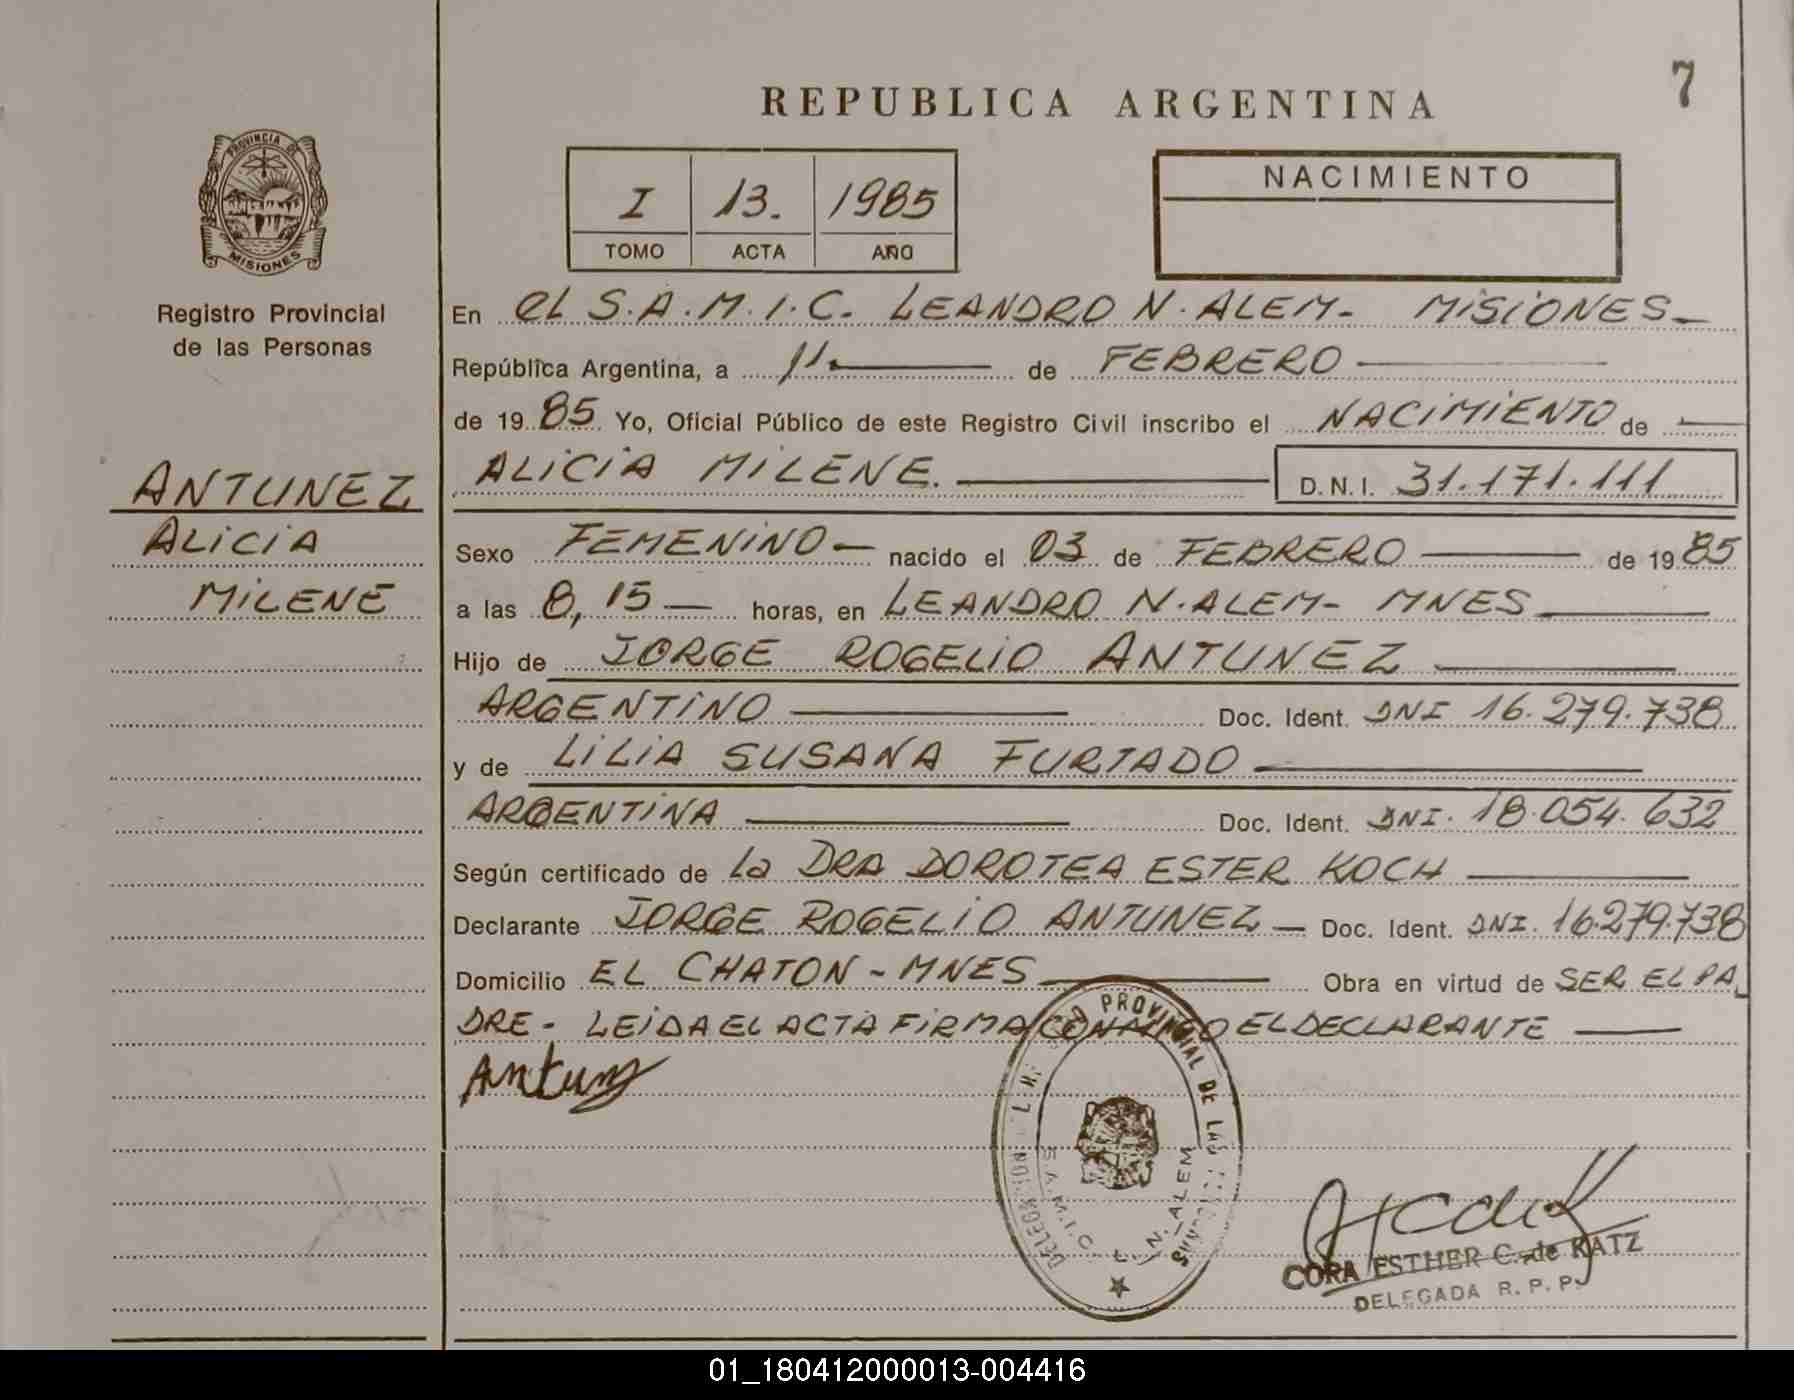 7
REPUBLICA ARGENTINA
PROVINCIA DE
MISIONES
Registro Provincial
de las Personas
I 13. 1985
TOMO ACTA AÑO
NACIMIENTO
ANTUNEZ
ALICIA
MILENE
En el S.A.M.I.C. LEANDRO N. ALEM - MISIONES -
República Argentina, a 11 de FEBRERO
de 1985 Yo, Oficial Público de este Registro Civil inscribo el NACIMIENTO de
ALICIA MILENE. D.N.I. 31.171.111
Sexo FEMENINO - nacido el 03 de FEBRERO de 1985
a las 8,15 - horas, en LEANDRO N. ALEM - MNES
Hijo de JORGE ROGELIO ANTUNEZ
ARGENTINO Doc. Ident. DNI 16.279.738
y de LILIA SUSANA FURTADO
ARGENTINA Doc. Ident. DNI. 18.054.632
Según certificado de la DRA DOROTEA ESTER KOCH
Declarante JORGE ROGELIO ANTUNEZ - Doc. Ident. DNI. 16.279.738
Domicilio EL CHATON - MNES Obra en virtud de SER EL PA
DRE - LEIDA EL ACTA FIRMA CONMIGO EL DECLARANTE
PROVINCIAL DE LAS
S.A.M.I.C. L. N. ALEM
CORA ESTHER C. de KATZ
DELEGADA R. P. P.
01_180412000013-004416